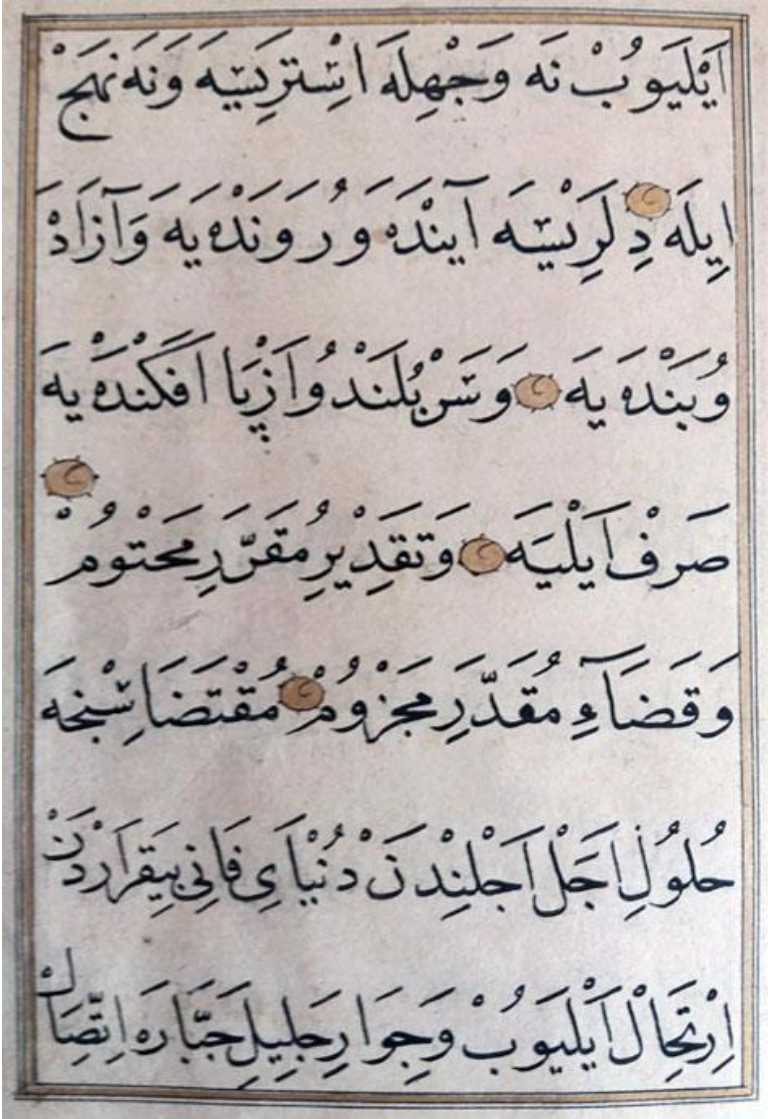 اَيْلَيُوبْ نَه وَجْهِلَه اِسْتَرِيسَه وَنَه نَهجْ
اِيلَه دِلَرِيسَه آيَنْدَه وُ رَوَنْدَه يَه وَآزَادْ
وُ بَنْدَه يَه وَسَرْبُلَنْدُ وَازْپَا اَفَكَنْدَه يَه
صَرْف اَيْلَيَه وَتَقْدِيرِ مُقَرَّرِ مَحْتُومْ
وَقَضَآءِ مُقَدَّرِ مَجْزُومْ مُقْتَضَاسِنْجَه
حُلُولِ اَجَلْ اَجْلِنْدَنْ دُنْيَاىِ فَانِى بِيقَرَارْدَنْ
اِرْتِحَالْ اَيْلَيُوبْ وَجِوَارِ جَلِيلِ جَبَّارَه اِتِّصَالْ